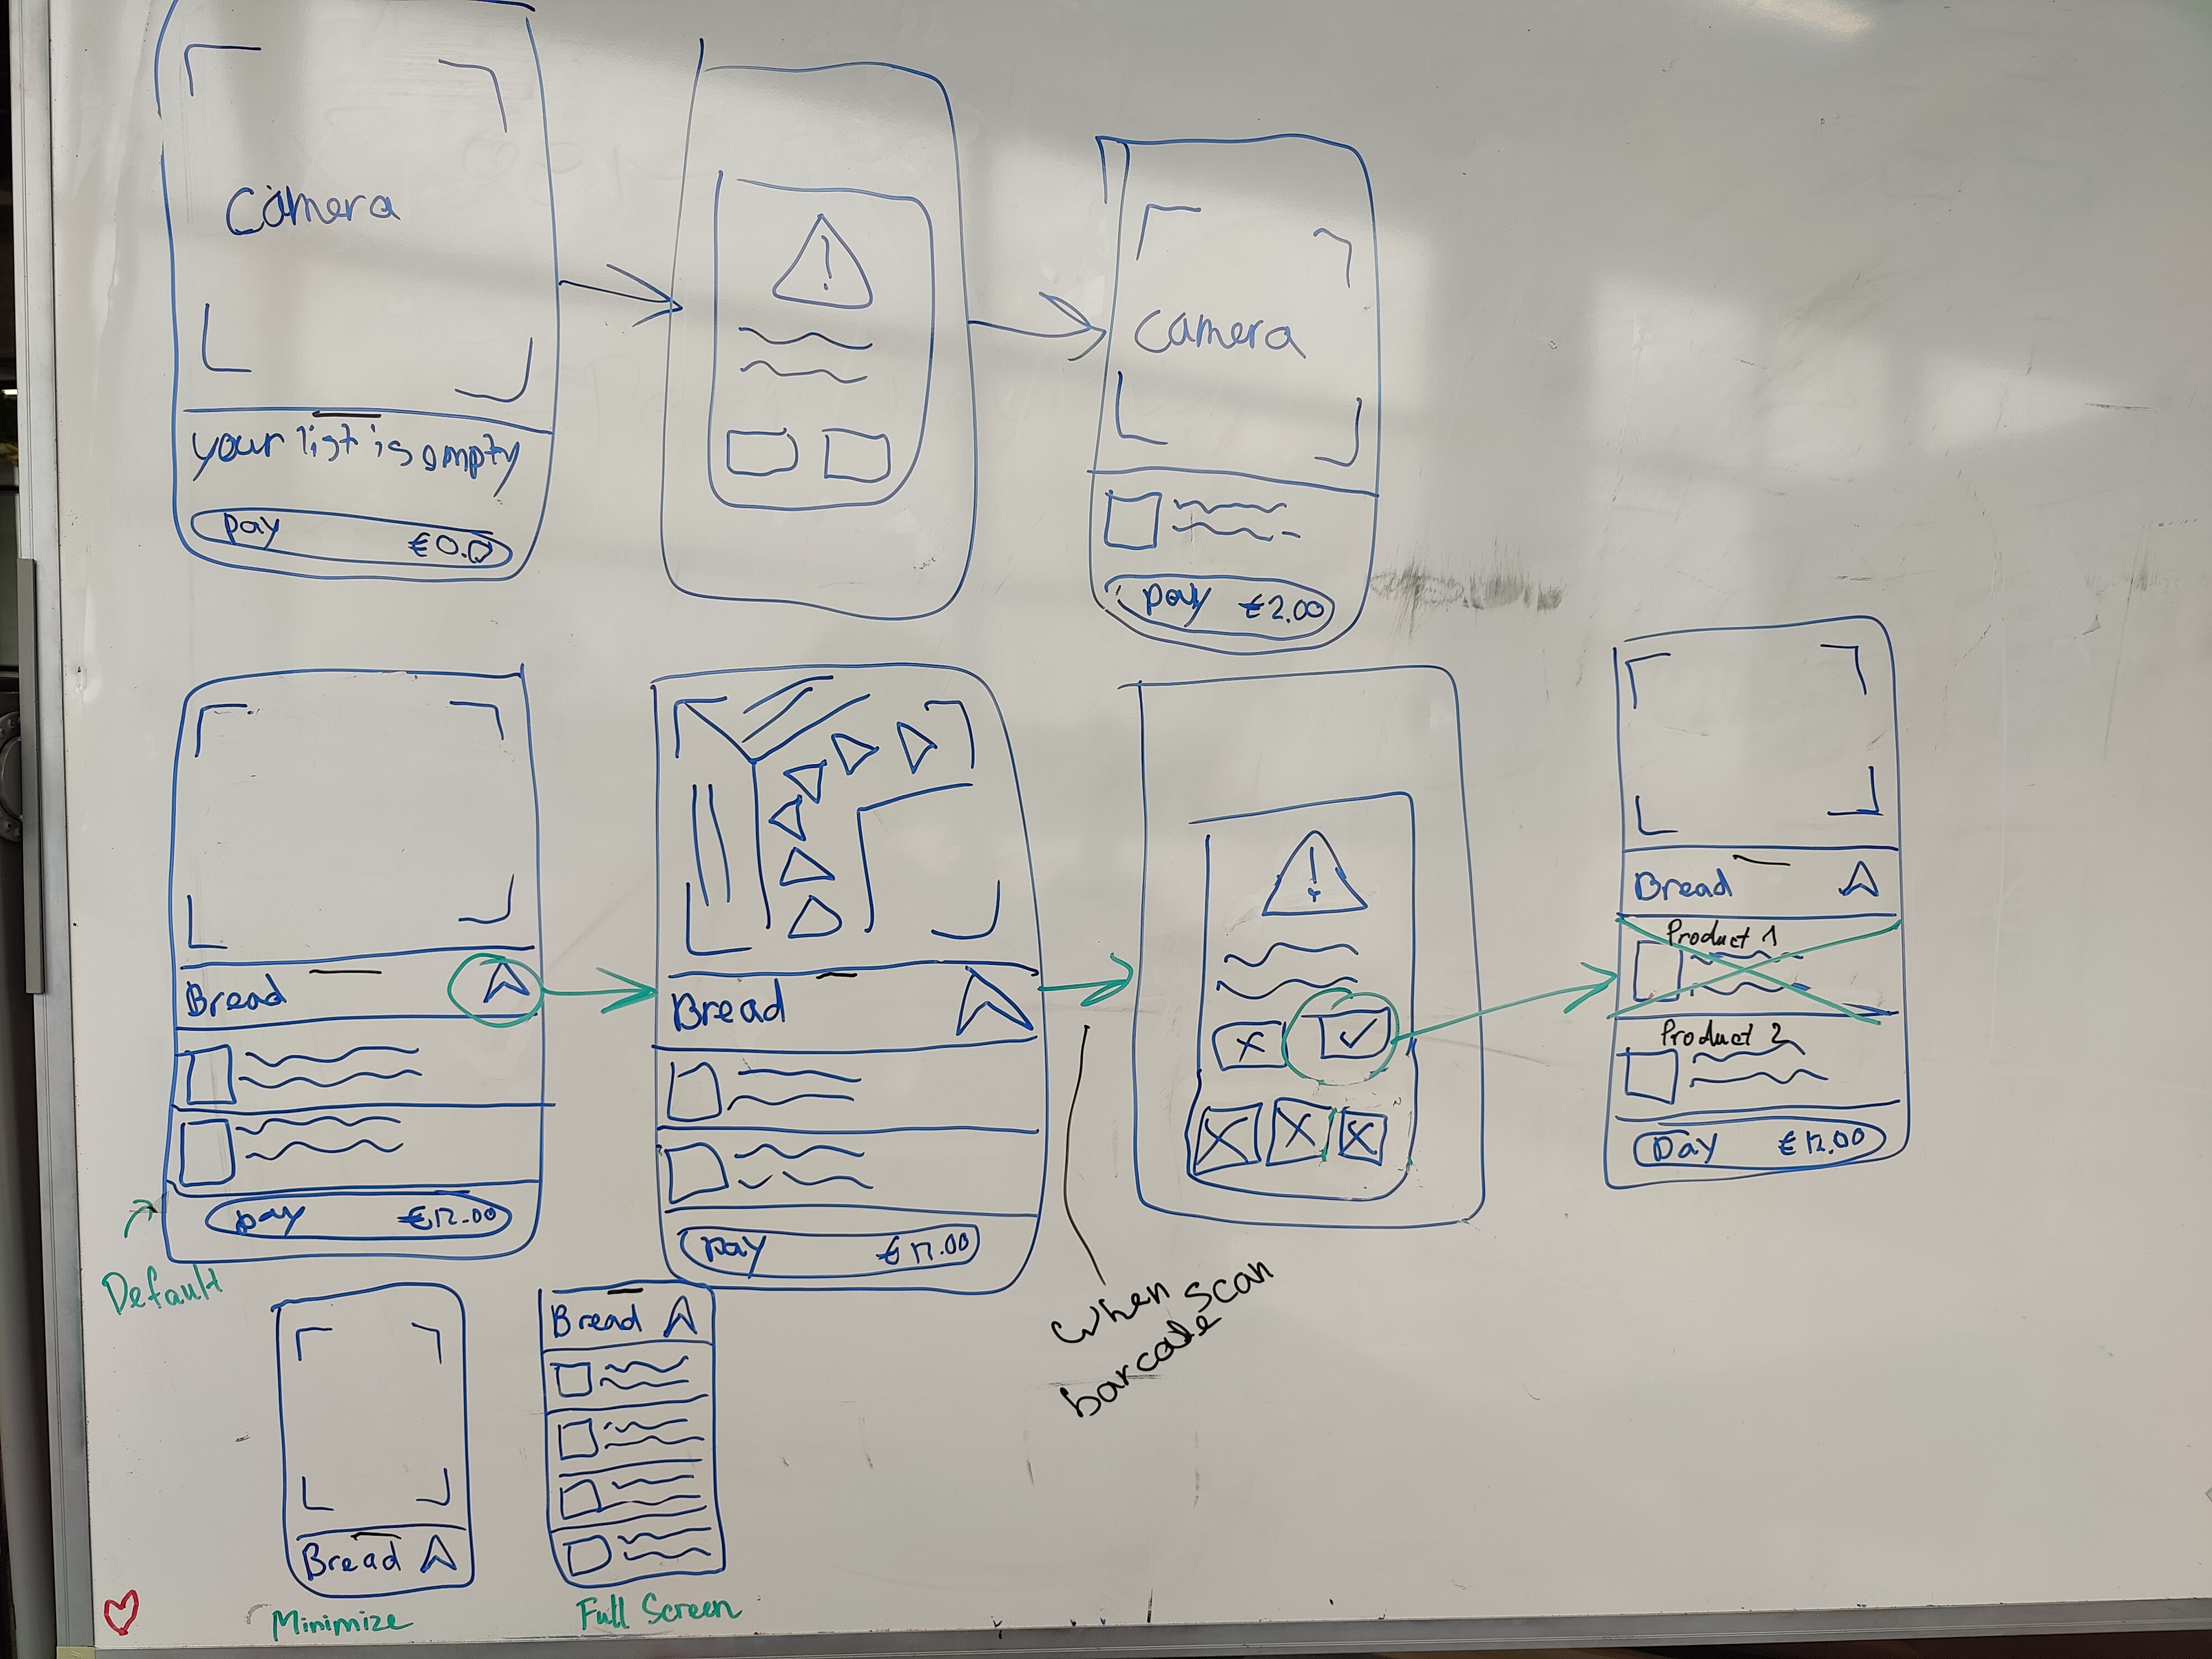 Camera
your list is empty
pay €0.0
!
Camera
pay €2.00
Bread
pay €12.00
Default
Bread
pay €12.00
When scan
barcode
!
Bread
Product 1
Product 2
Pay €12.00
Bread
Minimize
Bread
Full Screen